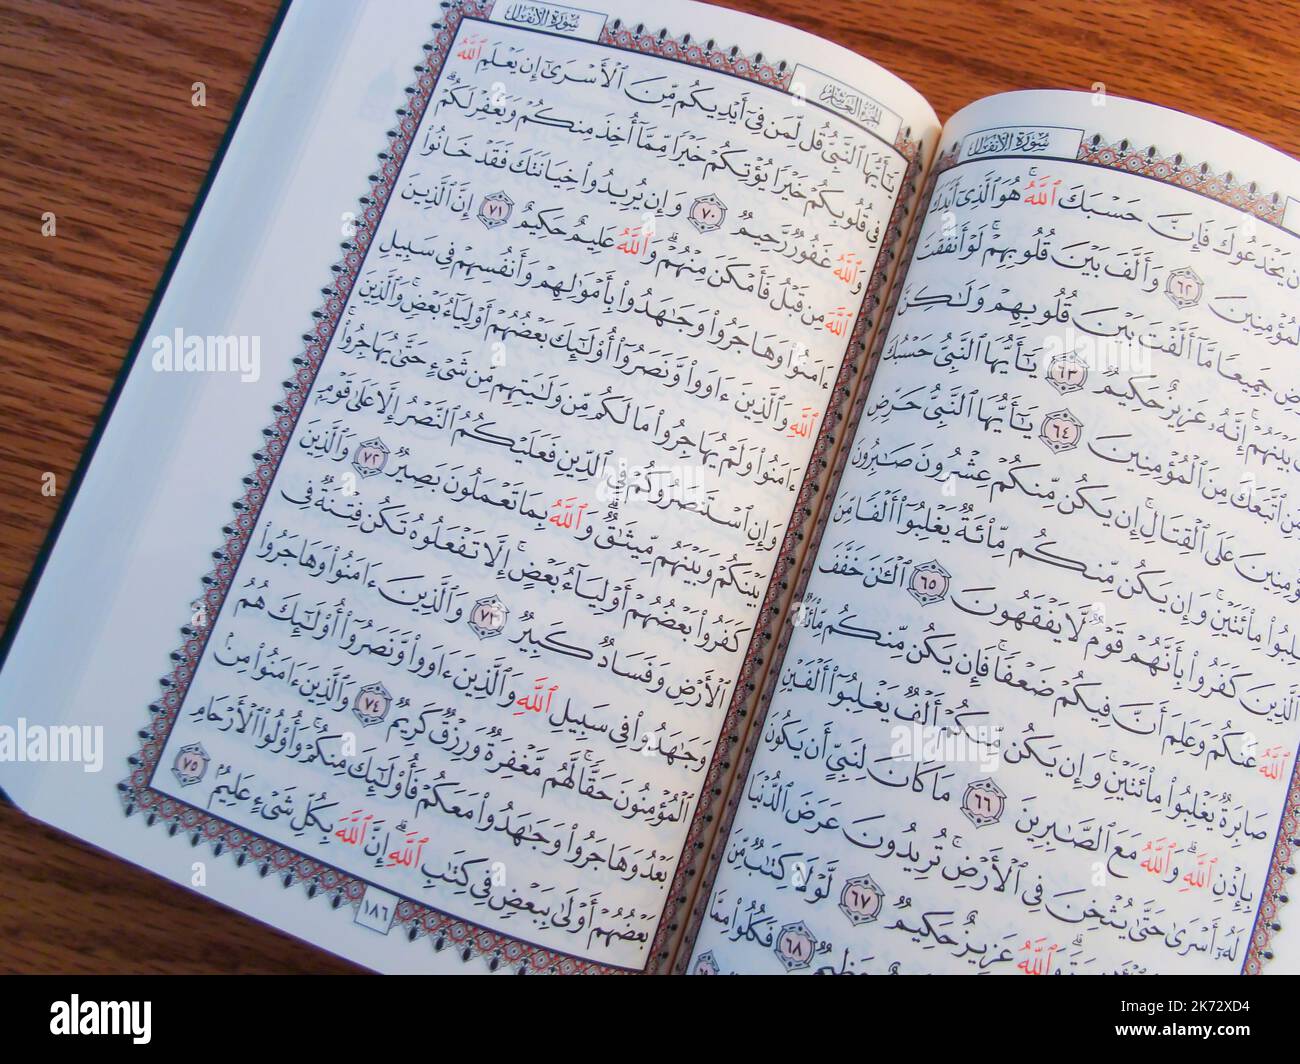 سُورَةُ الأَنفَال
يَخْدَعُوكَ فَإِنَّ حَسْبَكَ ٱللَّهُ هُوَ ٱلَّذِىٓ أَيَّدَكَ
ٱلْمُؤْمِنِينَ ٦٢ وَأَلَّفَ بَيْنَ قُلُوبِهِمْ لَوْ أَنفَقْتَ
جَمِيعًا مَّآ أَلَّفْتَ بَيْنَ قُلُوبِهِمْ وَلَٰكِنَّ
بَيْنَهُمْ إِنَّهُۥ عَزِيزٌ حَكِيمٌ ٦٣ يَٰٓأَيُّهَا ٱلنَّبِىُّ حَسْبُكَ
ٱتَّبَعَكَ مِنَ ٱلْمُؤْمِنِينَ ٦٤ يَٰٓأَيُّهَا ٱلنَّبِىُّ حَرِّضِ
عَلَى ٱلْقِتَالِ إِن يَكُن مِّنكُمْ عِشْرُونَ صَٰبِرُونَ
مِا۟ئَتَيْنِ وَإِن يَكُن مِّنكُم مِّا۟ئَةٌ يَغْلِبُوٓا۟ أَلْفًا مِّنَ
ٱلَّذِينَ كَفَرُوا۟ بِأَنَّهُمْ قَوْمٌ لَّا يَفْقَهُونَ ٦٥ ٱلْـَٰٔنَ خَفَّفَ
ٱللَّهُ عَنكُمْ وَعَلِمَ أَنَّ فِيكُمْ ضَعْفًا فَإِن يَكُن مِّنكُم مِّا۟ئَةٌ
صَابِرَةٌ يَغْلِبُوا۟ مِا۟ئَتَيْنِ وَإِن يَكُن مِّنكُمْ أَلْفٌ يَغْلِبُوٓا۟ أَلْفَيْنِ
بِإِذْنِ ٱللَّهِ وَٱللَّهُ مَعَ ٱلصَّٰبِرِينَ ٦٦ مَا كَانَ لِنَبِىٍّ أَن يَكُونَ
لَهُۥٓ أَسْرَىٰ حَتَّىٰ يُثْخِنَ فِى ٱلْأَرْضِ تُرِيدُونَ عَرَضَ ٱلدُّنْيَا
ٱللَّهُ عَزِيزٌ حَكِيمٌ ٦٧ لَّوْلَا كِتَٰبٌ مِّنَ
٦٨ فَكُلُوا۟ مِمَّا
الجُزءُ العَاشِرُ
سُورَةُ الأَنفَال
يَٰٓأَيُّهَا ٱلنَّبِىُّ قُل لِّمَن فِىٓ أَيْدِيكُم مِّنَ ٱلْأَسْرَىٰٓ إِن يَعْلَمِ ٱللَّهُ
فِى قُلُوبِكُمْ خَيْرًا يُؤْتِكُمْ خَيْرًا مِّمَّآ أُخِذَ مِنكُمْ وَيَغْفِرْ لَكُمْ
وَٱللَّهُ غَفُورٌ رَّحِيمٌ ٧٠ وَإِن يُرِيدُوا۟ خِيَانَتَكَ فَقَدْ خَانُوا۟
ٱللَّهَ مِن قَبْلُ فَأَمْكَنَ مِنْهُمْ وَٱللَّهُ عَلِيمٌ حَكِيمٌ ٧١ إِنَّ ٱلَّذِينَ
ءَامَنُوا۟ وَهَاجَرُوا۟ وَجَٰهَدُوا۟ بِأَمْوَٰلِهِمْ وَأَنفُسِهِمْ فِى سَبِيلِ
ٱللَّهِ وَٱلَّذِينَ ءَاوَوا۟ وَّنَصَرُوٓا۟ أُو۟لَٰٓئِكَ بَعْضُهُمْ أَوْلِيَآءُ بَعْضٍ وَٱلَّذِينَ
ءَامَنُوا۟ وَلَمْ يُهَاجِرُوا۟ مَا لَكُم مِّن وَلَٰيَتِهِم مِّن شَىْءٍ حَتَّىٰ يُهَاجِرُوا۟
وَإِنِ ٱسْتَنصَرُوكُمْ فِى ٱلدِّينِ فَعَلَيْكُمُ ٱلنَّصْرُ إِلَّا عَلَىٰ قَوْمٍۭ
بَيْنَكُمْ وَبَيْنَهُم مِّيثَٰقٌ وَٱللَّهُ بِمَا تَعْمَلُونَ بَصِيرٌ ٧٢ وَٱلَّذِينَ
كَفَرُوا۟ بَعْضُهُمْ أَوْلِيَآءُ بَعْضٍ إِلَّا تَفْعَلُوهُ تَكُن فِتْنَةٌ فِى
ٱلْأَرْضِ وَفَسَادٌ كَبِيرٌ ٧٣ وَٱلَّذِينَ ءَامَنُوا۟ وَهَاجَرُوا۟
وَجَٰهَدُوا۟ فِى سَبِيلِ ٱللَّهِ وَٱلَّذِينَ ءَاوَوا۟ وَّنَصَرُوٓا۟ أُو۟لَٰٓئِكَ هُمُ
ٱلْمُؤْمِنُونَ حَقًّا لَّهُم مَّغْفِرَةٌ وَرِزْقٌ كَرِيمٌ ٧٤ وَٱلَّذِينَ ءَامَنُوا۟ مِنۢ
بَعْدُ وَهَاجَرُوا۟ وَجَٰهَدُوا۟ مَعَكُمْ فَأُو۟لَٰٓئِكَ مِنكُمْ وَأُو۟لُوا۟ ٱلْأَرْحَامِ
بَعْضُهُمْ أَوْلَىٰ بِبَعْضٍ فِى كِتَٰبِ ٱللَّهِ إِنَّ ٱللَّهَ بِكُلِّ شَىْءٍ عَلِيمٌۢ ٧٥
١٨٦
alamy
Image ID: 2K72XD4
www.alamy.com